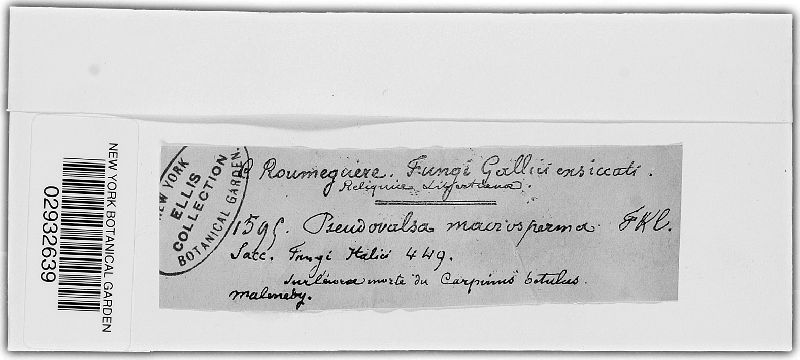 NEW YORK BOTANICAL GARDEN
02932639
NEW YORK
ELLIS
COLLECTION
BOTANICAL GARDEN.
Roumeguère. Fungi Gallici ensiccati.
Reliquiæ Libertianæ.
1595. Pseudovalsa macrosperma FKL.
Sacc. Fungi Italici 449.
Sur morte du Carpinus betulus.
malmedy.